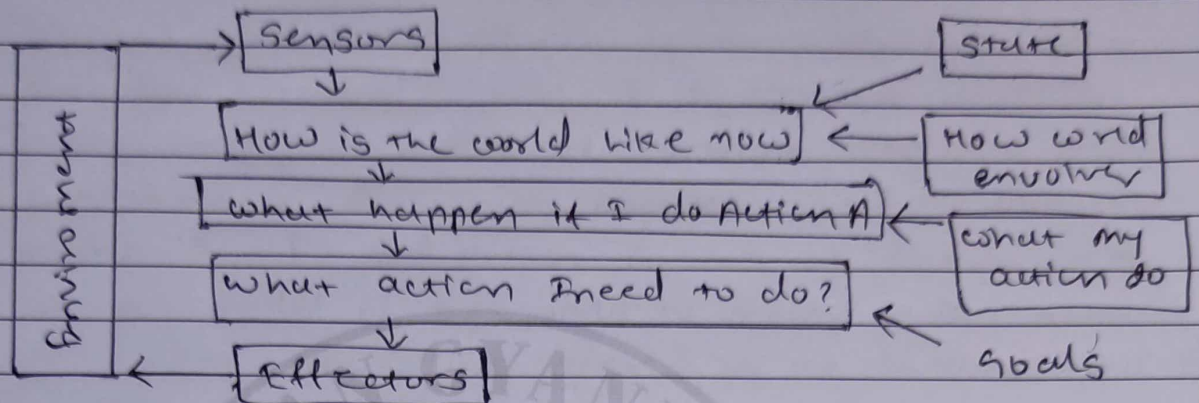 Sensors
State
How is the world like now
How world
envolver
what happen if I do Action A
what my
action do
what action I need to do?
Goals
Effectors
GYAN